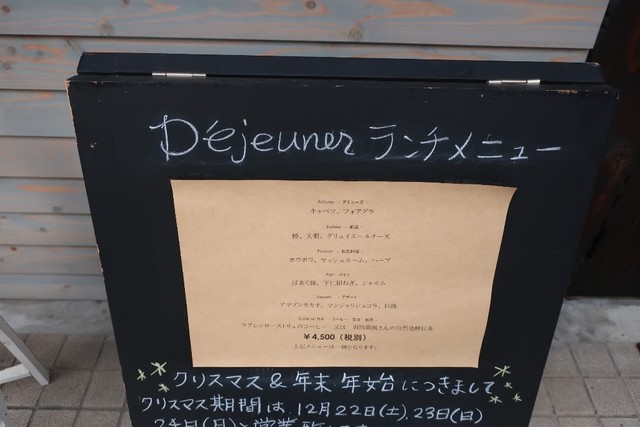 Déjeuner ランチメニュー
Amuse - アミューズ -
キャベツ、フォアグラ
- 前菜 -
鱒、大根、グリュイエールチーズ
Poisson - お魚料理 -
ホウボウ、マッシュルーム、ハーブ
ばあく豚、下仁田ねぎ、シャルム
Dessert - デザート -
アマゾンカカオ、マンジャリショコラ、
コーヒー 又は お茶 -
のコーヒー 又は
¥4,500（税別）
上記メニューは一例となります。
クリスマス & 年末年始につきまして
クリスマス期間は、12月22日(土)、23日(日)
24日(月)と営業致します